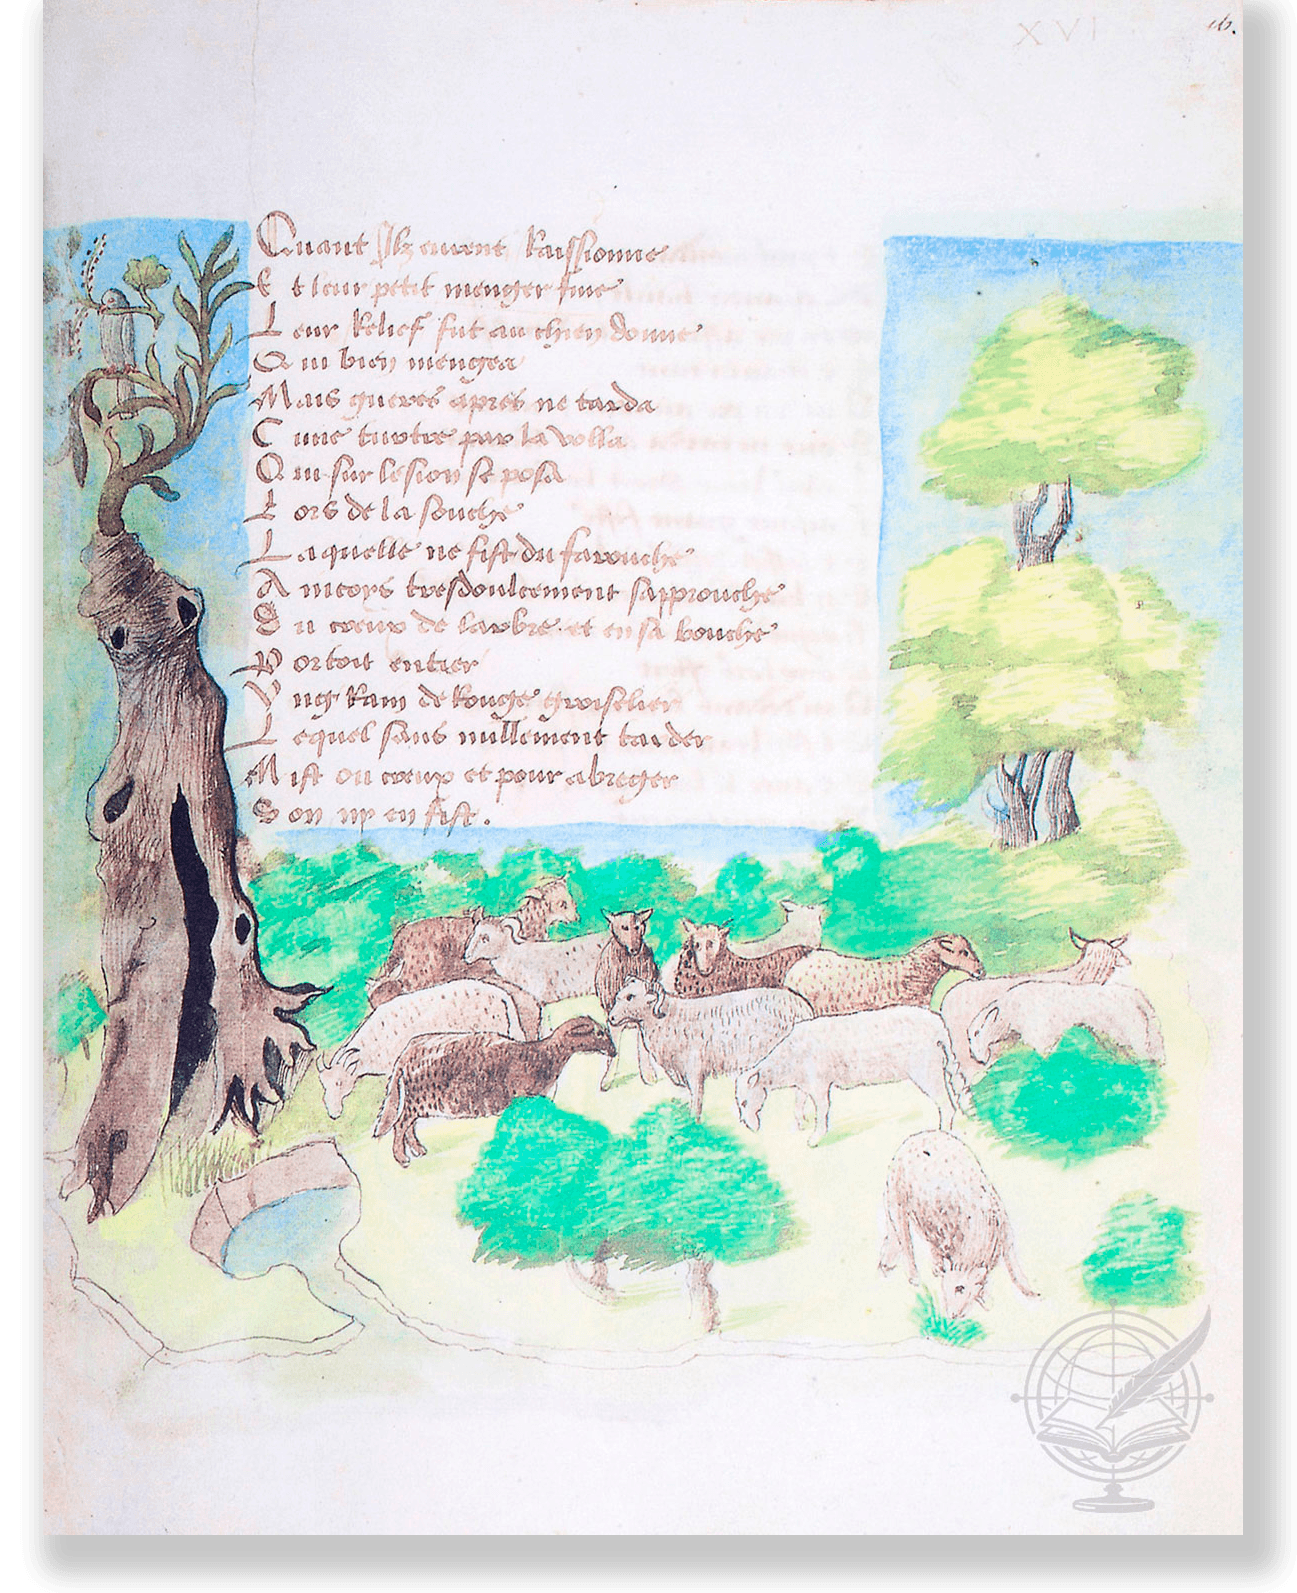 XVI
16.
Quant Ilz eurent Raissionne
E t leur petit menger fine
L eur Relief fut au chien donne
Q ui bien mengea
M ais gueres apres ne tarda
C une turtre par la volla
Q ui sur lesion se posa
L ors de la souche
L aquelle ne fist du farouche
A incoys tresdoulcement sapprouche
D u cueur de larbre et en sa bouche
P ortoit entier
V ng Raim de Rouge groiselier
L equel sans nullement tarder
M ist ou cueur et pour abreger
S on ny en fist.